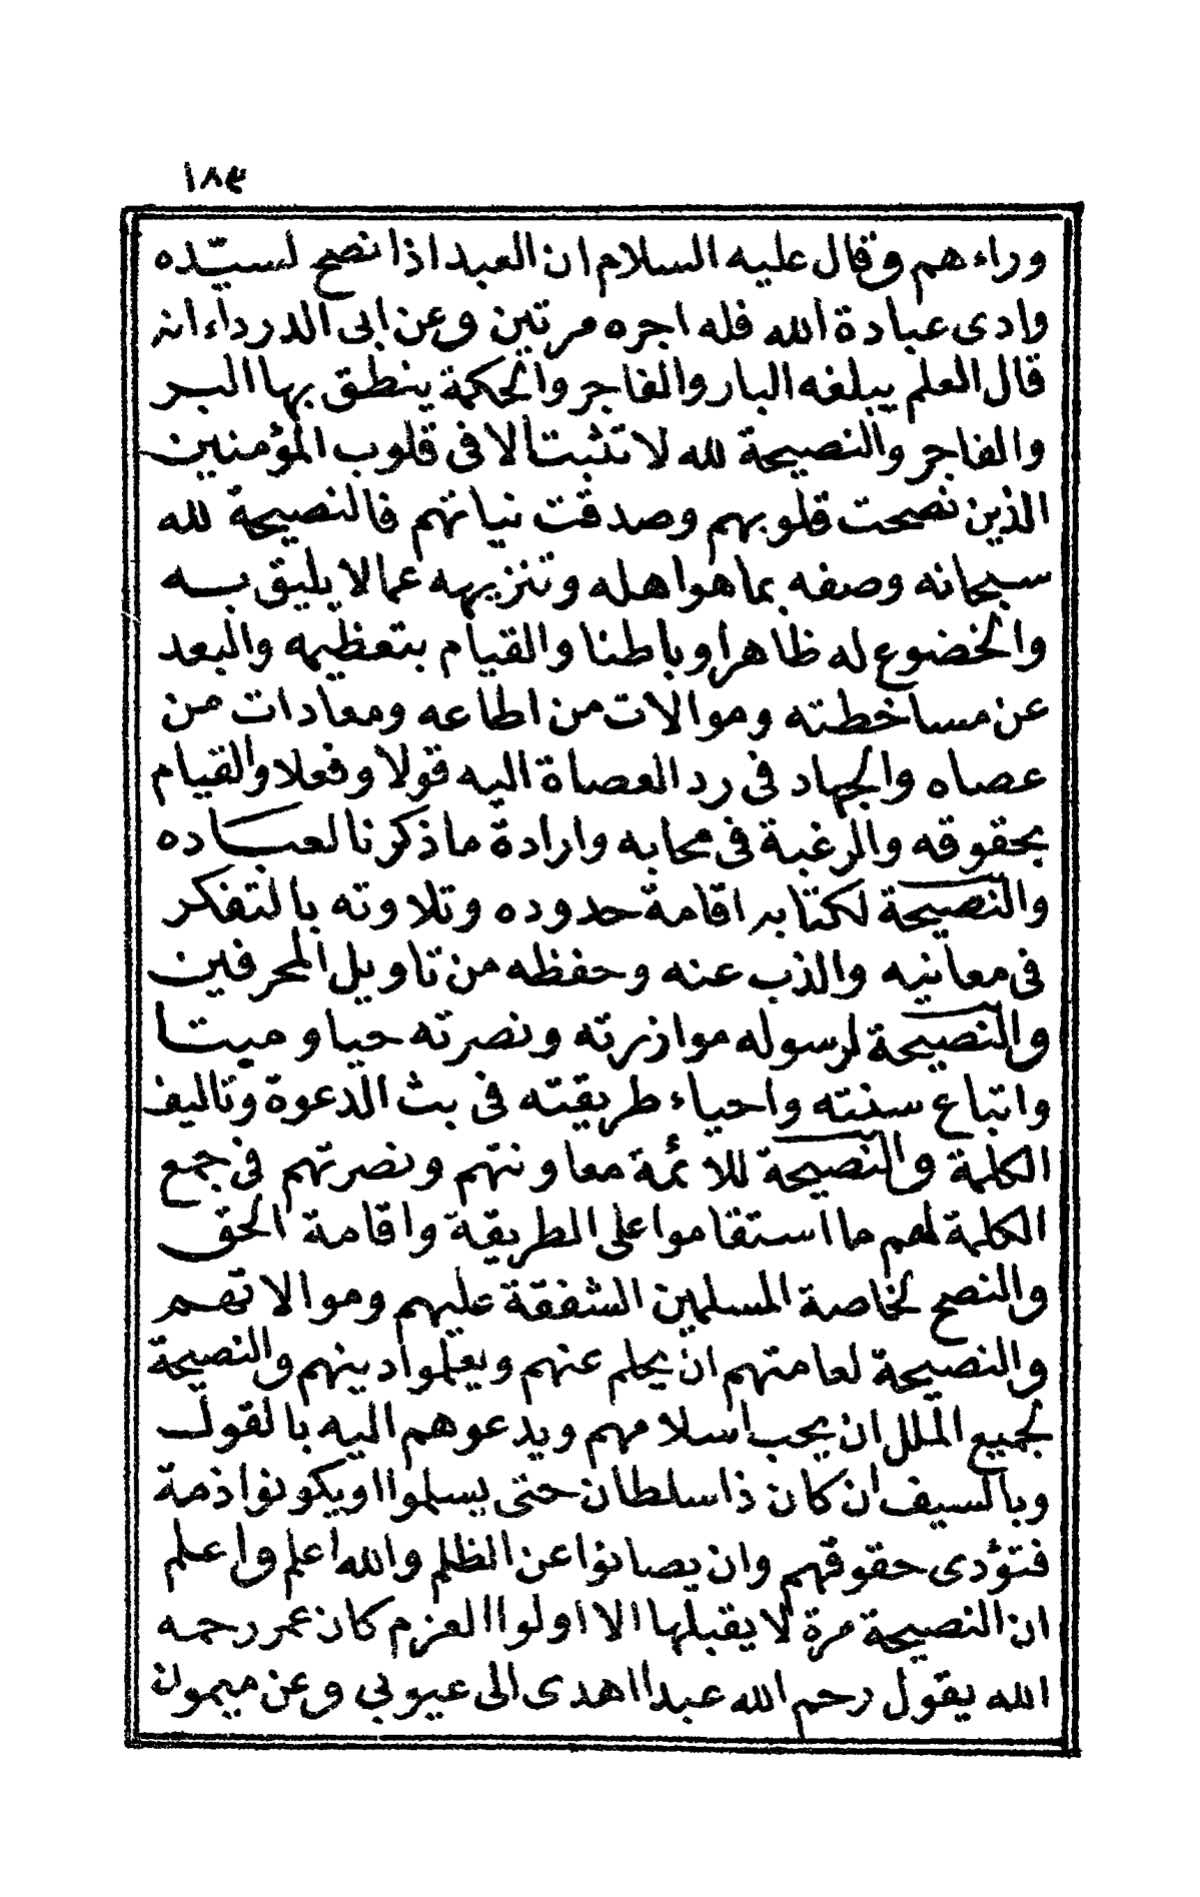 ١٨٣
وراءهم وقال عليه السلام ان العبد اذا نصح لسيّده
وادى عبادة الله فله اجره مرتين وعن ابى الدرداء انه
قال العلم يبلغه البار والفاجر والحكمة ينطق بها البر
والفاجر والنصيحة لله لا تثبت الا فى قلوب المؤمنين
الذين نصحت قلوبهم وصدقت نياتهم فالنصيحة لله
سبحانه وصفه بما هو اهله وتنزيهه عما لا يليق به
والخضوع له ظاهرا وباطنا والقيام بتعظيمه والبعد
عن مساخطته وموالات من اطاعه ومعادات من
عصاه والجهاد فى رد العصاة اليه قولا وفعلا والقيام
بحقوقه والرغبة فى محابه وارادة ما ذكرنا لعباده
والنصيحة لكتابه اقامة حدوده وتلاوته بالتفكر
فى معانيه والذب عنه وحفظه من تاويل المحرفين
والنصيحة لرسوله موازرته ونصرته حيا وميتا
واتباع سنته واحياء طريقته فى بث الدعوة وتاليف
الكلمة والنصيحة للائمة معاونتهم ونصرتهم فى جمع
الكلمة لهم ما استقاموا على الطريقة واقامة الحق
والنصح لخاصة المسلمين الشفقة عليهم وموالاتهم
والنصيحة لعامتهم ان يحلم عنهم ويعلموا دينهم والنصيحة
لجميع الملل ان يحب اسلامهم ويدعوهم اليه بالقول
وبالسيف ان كان ذا سلطان حتى يسلموا او يكونوا ذمة
فتؤدى حقوقهم وان يصانوا عن الظلم والله اعلم واعلم
ان النصيحة مرة لا يقبلها الا اولوا العزم كان عمر رحمه
الله يقول رحم الله عبدا اهدى الى عيوبي وعن ميمون